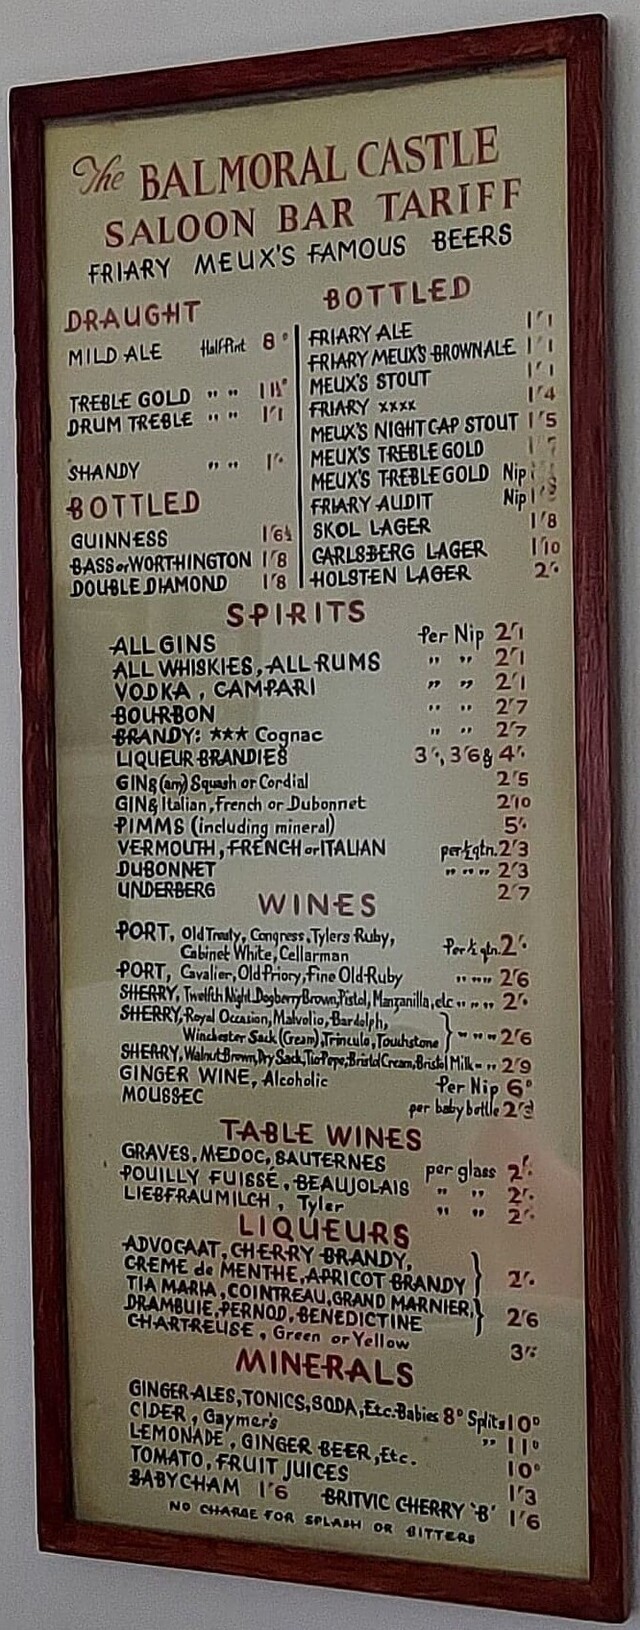 The BALMORAL CASTLE
SALOON BAR TARIFF
FRIARY MEUX'S FAMOUS BEERS
DRAUGHT
MILD ALE Half Pint 8ᴰ
TREBLE GOLD " " 1'1½ᴰ
DRUM TREBLE " " 1'1
SHANDY " " 1'-
BOTTLED
GUINNESS 1'6½
BASS or WORTHINGTON 1'8
DOUBLE DIAMOND 1'8
BOTTLED
FRIARY ALE 1'1
FRIARY MEUX'S BROWN ALE 1'1
MEUX'S STOUT 1'1
FRIARY xxxx 1'4
MEUX'S NIGHT CAP STOUT 1'5
MEUX'S TREBLE GOLD
MEUX'S TREBLE GOLD Nip
FRIARY AUDIT Nip
SKOL LAGER 1'8
CARLSBERG LAGER 1'10
HOLSTEN LAGER 2'-
SPIRITS
ALL GINS Per Nip 2'1
ALL WHISKIES, ALL RUMS " " 2'1
VODKA, CAMPARI " " 2'1
BOURBON " " 2'7
BRANDY: *** Cognac " " 2'7
LIQUEUR BRANDIES 3'-, 3'6 & 4'-
GIN & (any) Squash or Cordial 2'5
GIN & Italian, French or Dubonnet 2'10
PIMMS (including mineral) 5'-
VERMOUTH, FRENCH or ITALIAN per ½ qtn. 2'3
DUBONNET " " " 2'3
UNDERBERG 2'7
WINES
PORT, Old Treaty, Congress, Tylers Ruby,
Cabinet White, Cellarman Per ½ qtn. 2'-
PORT, Cavalier, Old Priory, Fine Old Ruby " " " 2'6
SHERRY, Twelfth Night, Dogberry Brown, Pistol, Manzanilla, etc " " " 2'-
SHERRY, Royal Occasion, Malvolio, Bardolph,
Winchester Sack (Cream), Trinculo, Touchstone } " " " 2'6
SHERRY, Walnut Brown, Dry Sack, Tio Pepe, Bristol Cream, Bristol Milk " " 2'9
GINGER WINE, Alcoholic Per Nip 6ᴰ
MOUSSEC per baby bottle
TABLE WINES
GRAVES, MEDOC, SAUTERNES per glass 2'-
POUILLY FUISSÉ, BEAUJOLAIS " " 2'-
LIEBFRAUMILCH, Tyler " " 2'-
LIQUEURS
ADVOCAAT, CHERRY BRANDY,
CREME de MENTHE, APRICOT BRANDY } 2'-
TIA MARIA, COINTREAU, GRAND MARNIER,
DRAMBUIE, PERNOD, BENEDICTINE } 2'6
CHARTREUSE, Green or Yellow 3'-
MINERALS
GINGER ALES, TONICS, SODA, Etc. Babies 8ᴰ Splits 10ᴰ
CIDER, Gaymer's " 11ᴰ
LEMONADE, GINGER BEER, Etc. 10ᴰ
TOMATO, FRUIT JUICES 1'3
BABYCHAM 1'6 BRITVIC CHERRY 'B' 1'6
NO CHARGE FOR SPLASH OR BITTERS